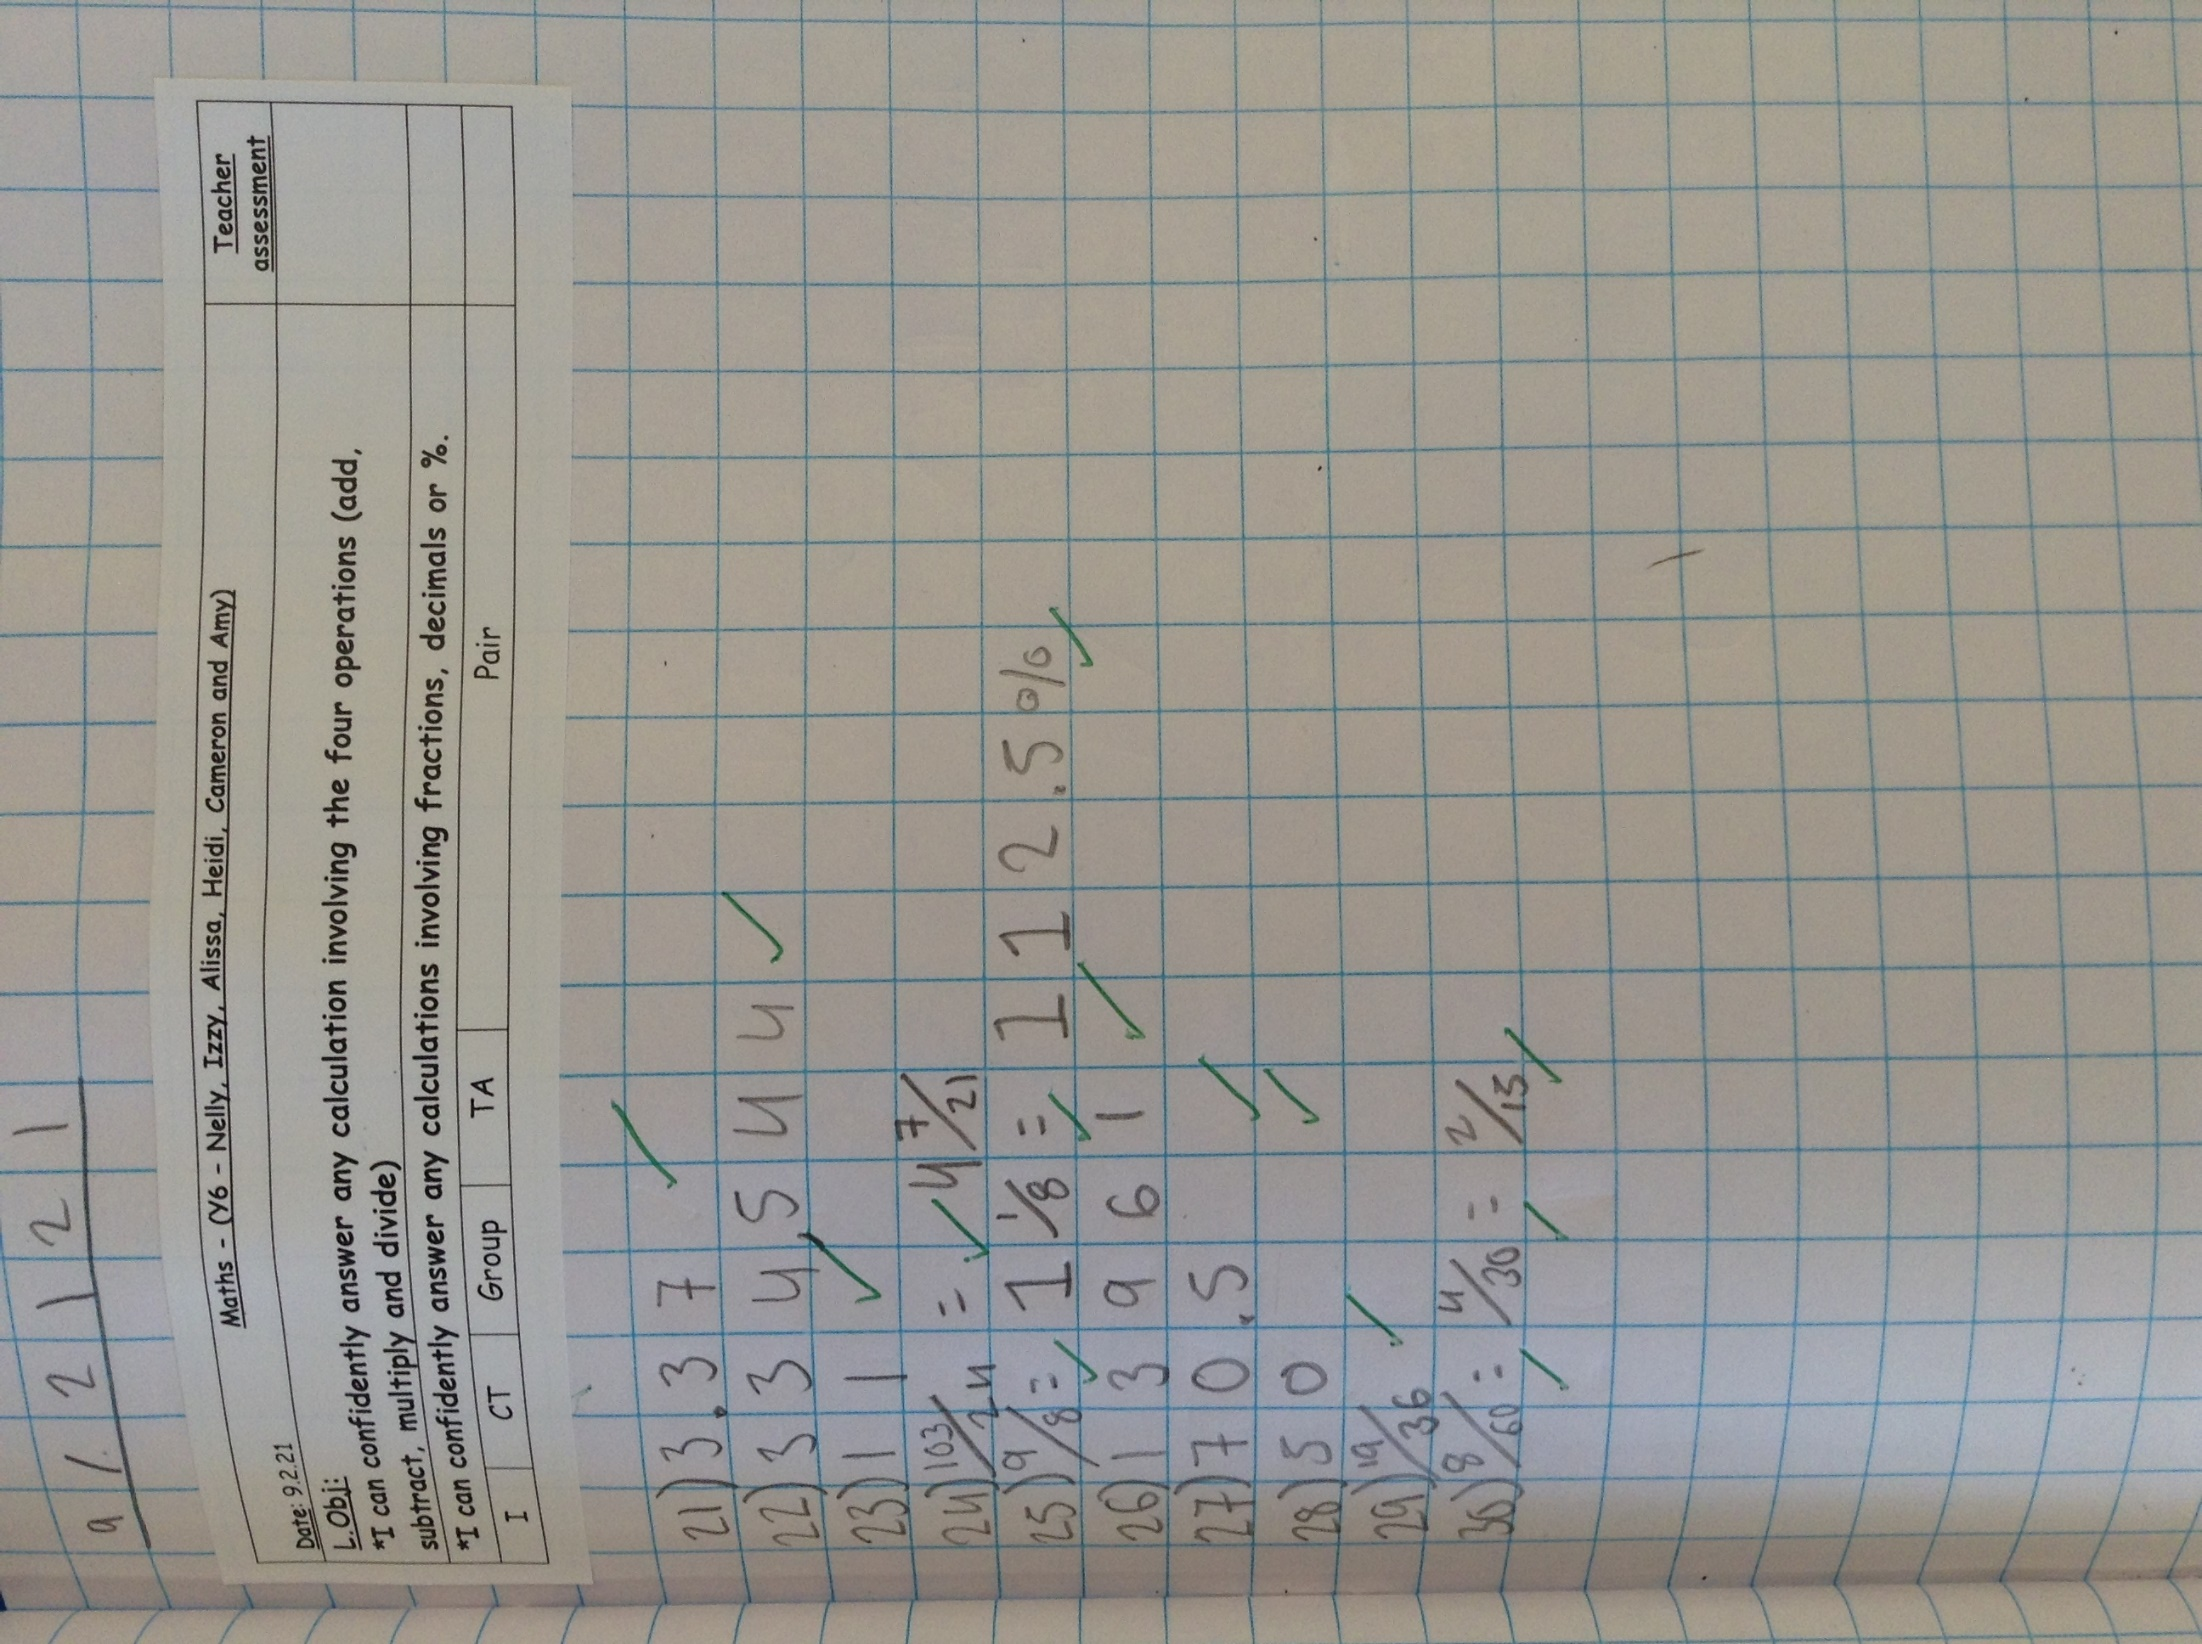 9 / . 2 1 2 1
Maths - (Y6 - Nelly, Izzy, Alissa, Heidi, Cameron and Amy)
Teacher
assessment
Date: 9.2.21
L.Obj:
*I can confidently answer any calculation involving the four operations (add,
subtract, multiply and divide)
*I can confidently answer any calculations involving fractions, decimals or %.
I CT Group TA Pair
21) 3.37
22) 334,544
23) 11
24) 103/24 = 4 7/21
25) 9/8 = 1 1/8 = 112.5%
26) 13961
27) 70.5
28) 50
29) 19/36
30) 8/60 = 4/30 = 2/15